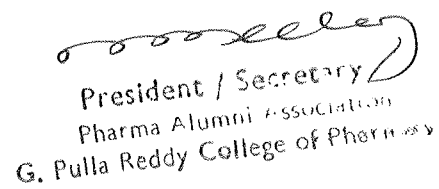 President / Secretary
Pharma Alumni Association
G. Pulla Reddy College of Pharmacy